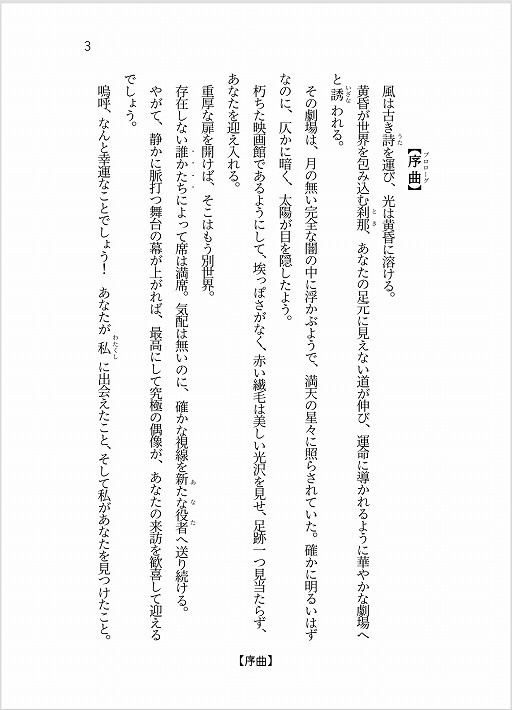 3
【序曲】
プロローグ
風は古き詩を運び、光は黄昏に溶ける。
うた
黄昏が世界を包み込む刹那、あなたの足元に見えない道が伸び、運命に導かれるように華やかな劇場へ
とき
と誘われる。
いざな
その劇場は、月の無い完全な闇の中に浮かぶようで、満天の星々に照らされていた。確かに明るいはず
なのに、仄かに暗く、太陽が目を隠したよう。
朽ちた映画館であるようにして、埃っぽさがなく、赤い絨毛は美しい光沢を見せ、足跡一つ見当たらず、
あなたを迎え入れる。
重厚な扉を開けば、そこはもう別世界。
存在しない誰かたちによって席は満席。気配は無いのに、確かな視線を新たな役者へ送り続ける。
あなた
やがて、静かに脈打つ舞台の幕が上がれば、最高にして究極の偶像が、あなたの来訪を歓喜して迎える
でしょう。
嗚呼、なんと幸運なことでしょう！　あなたが私に出会えたこと、そして私があなたを見つけたこと。
わたくし
【序曲】